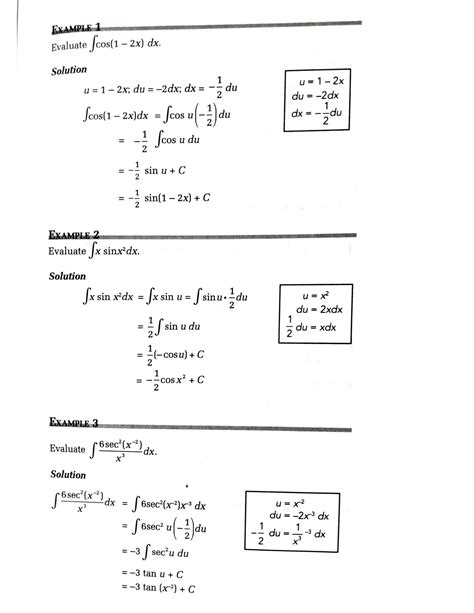 EXAMPLE 1
Evaluate ∫cos(1 – 2x) dx.
Solution
u = 1 – 2x; du = –2dx; dx = –1/2 du
∫cos(1 – 2x)dx = ∫cos u(–1/2)du
= –1/2 ∫cos u du
= –1/2 sin u + C
= –1/2 sin(1 – 2x) + C
u = 1 – 2x
du = –2dx
dx = –1/2du
EXAMPLE 2
Evaluate ∫x sinx²dx.
Solution
∫x sin x²dx = ∫x sin u = ∫sinu • 1/2 du
= 1/2∫ sin u du
= 1/2(–cosu) + C
= –1/2cosx² + C
u = x²
du = 2xdx
1/2 du = xdx
EXAMPLE 3
Evaluate ∫6sec²(x⁻²)/x³ dx.
Solution
∫6sec²(x⁻²)/x³ dx = ∫6sec²(x⁻²)x⁻³ dx
= ∫6sec² u(–1/2)du
= –3 ∫ sec²u du
= –3 tan u + C
= –3 tan (x⁻²) + C
u = x⁻²
du = –2x⁻³ dx
–1/2 du = 1/x³ ⁻³ dx